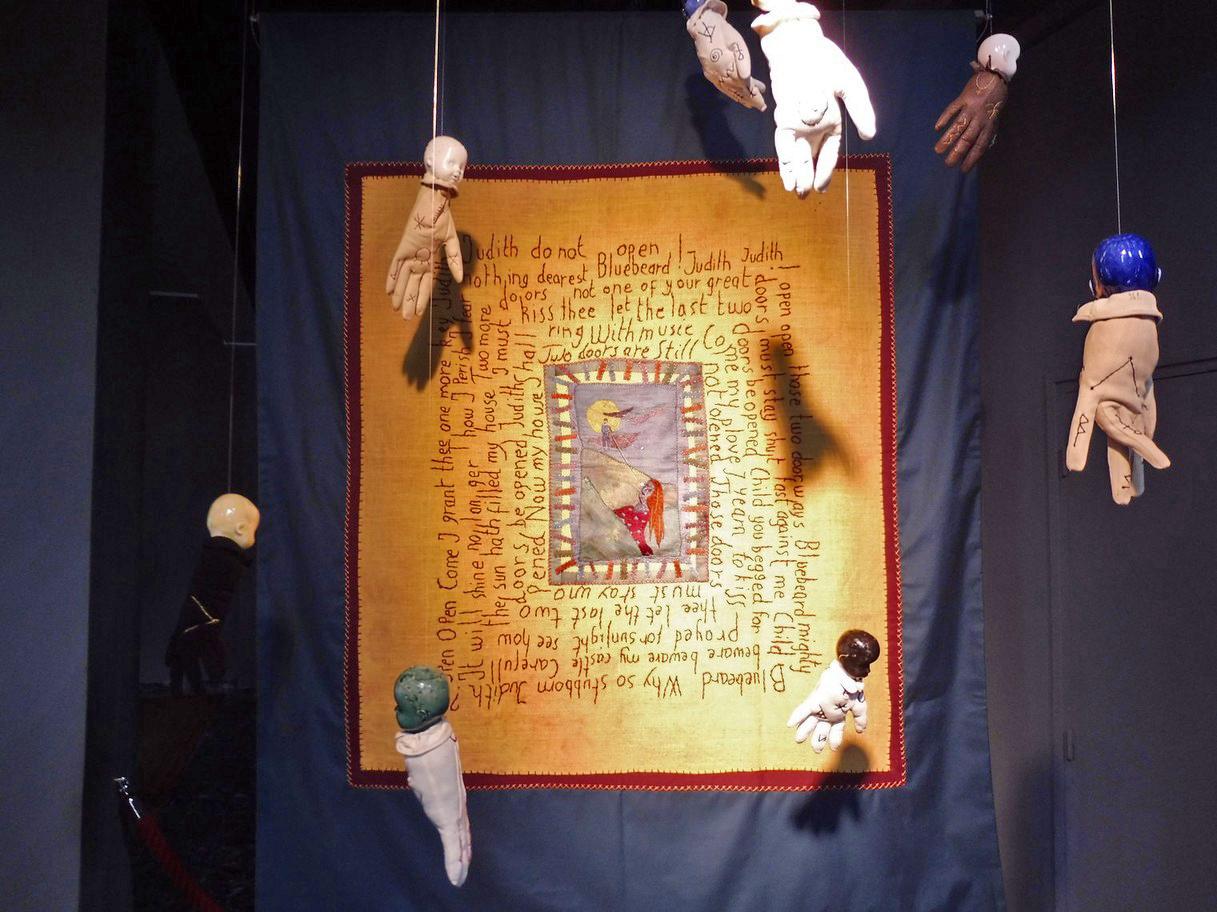 Judith do not open ! Judith Judith !
nothing dearest Bluebeard !
doors not one of your great
Kiss thee let the last two
ring With music Co
Two doors are Still
open open those two doorways Bluebeard mighty
doors must stay shut fast against me Child
doors be opened Child you begged for
me my love I yearn to kiss
not opened Those doors
Bluebeard Why so stubborn Judith ?
beware beware my castle Carefull
prayed for sunlight see how
thee let the last two
must stay uno
Open Come I grant thee one more key Judith
It will shine no longer how I Perish I fear
the sun hath filled my house Two more
doors be opened Judith I must
pened Now my house shall